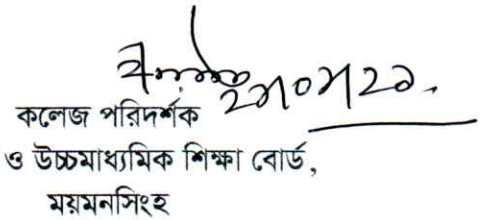 কলেজ পরিদর্শক
ও উচ্চমাধ্যমিক শিক্ষা বোর্ড,
ময়মনসিংহ